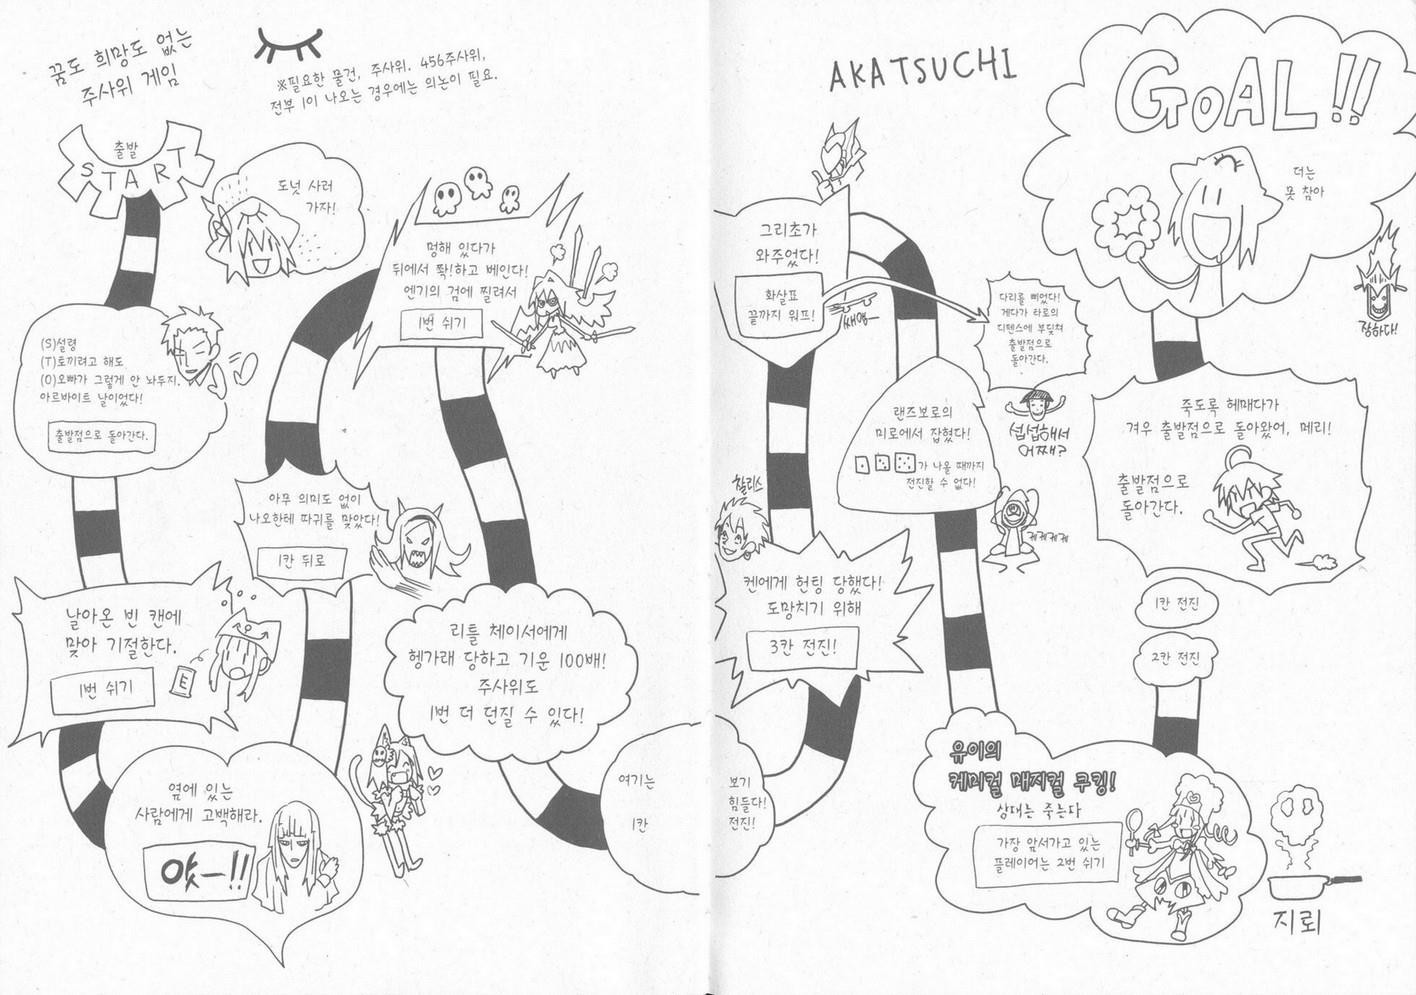 꿈도 희망도 없는
주사위 게임
※필요한 물건, 주사위. 456주사위,
전부 1이 나오는 경우에는 의논이 필요.
출발
START
도넛 사러
가자!
(S)설령
(T)토끼려고 해도
(O)오빠가 그렇게 안 놔두지.
아르바이트 날이었다!
출발점으로 돌아간다.
날아온 빈 캔에
맞아 기절한다.
1번 쉬기
E
옆에 있는
사람에게 고백해라.
얏ー!!
아무 의미도 없이
나오한테 따귀를 맞았다!
1칸 뒤로
멍해 있다가
뒤에서 퐉!하고 베인다!
엔기의 검에 찔려서
1번 쉬기
리틀 체이서에게
헹가래 당하고 기운 100배!
주사위도
1번 더 던질 수 있다!
여기는 보기
힘들다!
1칸 전진!
찰리스
켄에게 헌팅 당했다!
도망치기 위해
3칸 전진!
그리초가
와주었다!
화살표
끝까지 워프!
쌔앵ー
AKATSUCHI
랜즈보로의
미로에서 잡혔다!
가 나올 때까지
전진할 수 없다!
케케케케
다리를 삐었다!
게다가 타로의
디펜스에 부딪쳐
출발점으로
돌아간다.
섭섭해서
어쩨?
유이의
케미컬 매지컬 쿠킹!
상대는 죽는다
가장 앞서가고 있는
플레이어는 2번 쉬기
지뢰
2칸 전진
1칸 전진
죽도록 헤매다가
겨우 출발점으로 돌아왔어, 메리!
출발점으로
돌아간다.
GOAL!!
더는
못 참아
장하다!